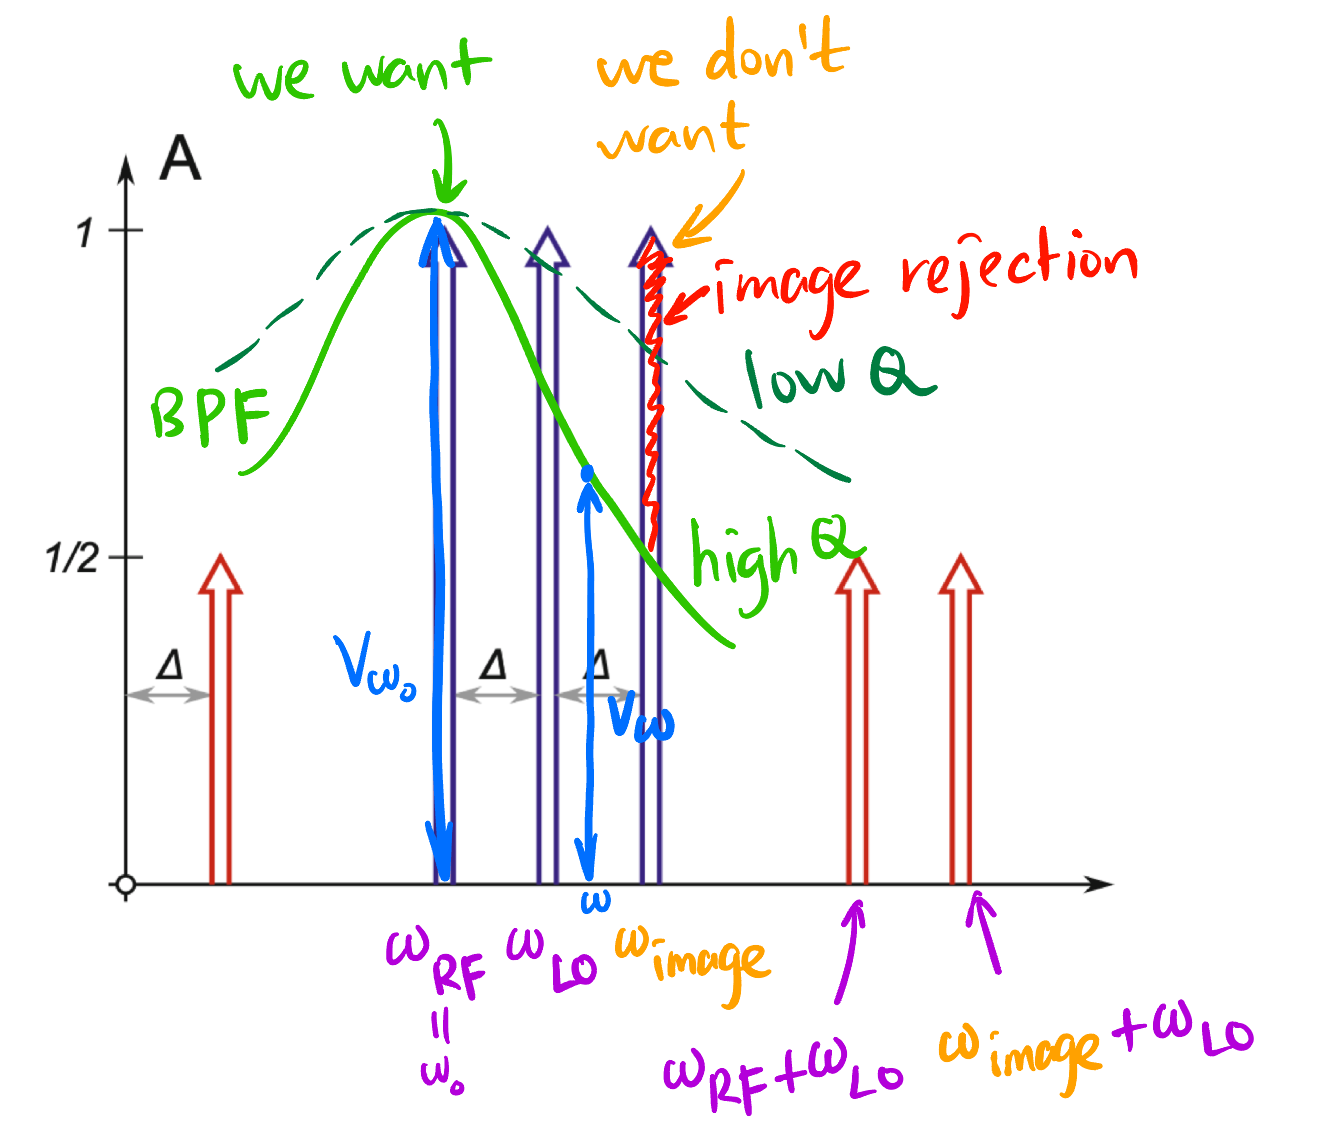 we want
we don't
want
A
1
image rejection
low Q
BPF
1/2
high Q
Δ
Δ
Δ
Vω₀
Vω
ω
ωRF
ωLO
ωimage
=
ω₀
ωRF+ωLO
ωimage+ωLO